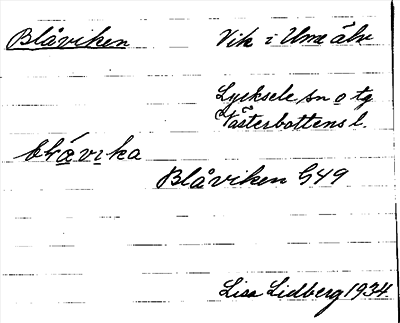 Blåviken Vik i Ume älv
Lycksele sn o tg
Västerbottens l.
blávika
Blåviken G49
Lisa Lidberg 1934